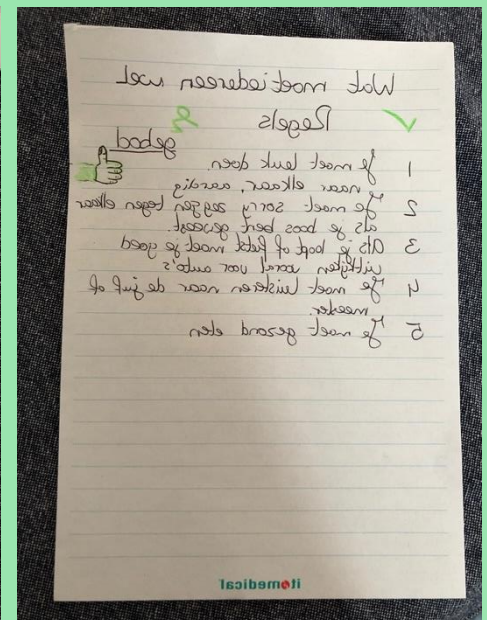 Wat moet iedereen wel
Regels
gebod
1 Je moet leuk doen.
naar elkaar, aardig
2 Je moet sorry zeggen tegen elkaar
als je boos bent geweest.
3 Als je loopt of fietst moet je goed
uitkijken voral voor auto's
4 Je moet luisteren naar de juf of
meester.
5 Je moet gezond eten
itomedical